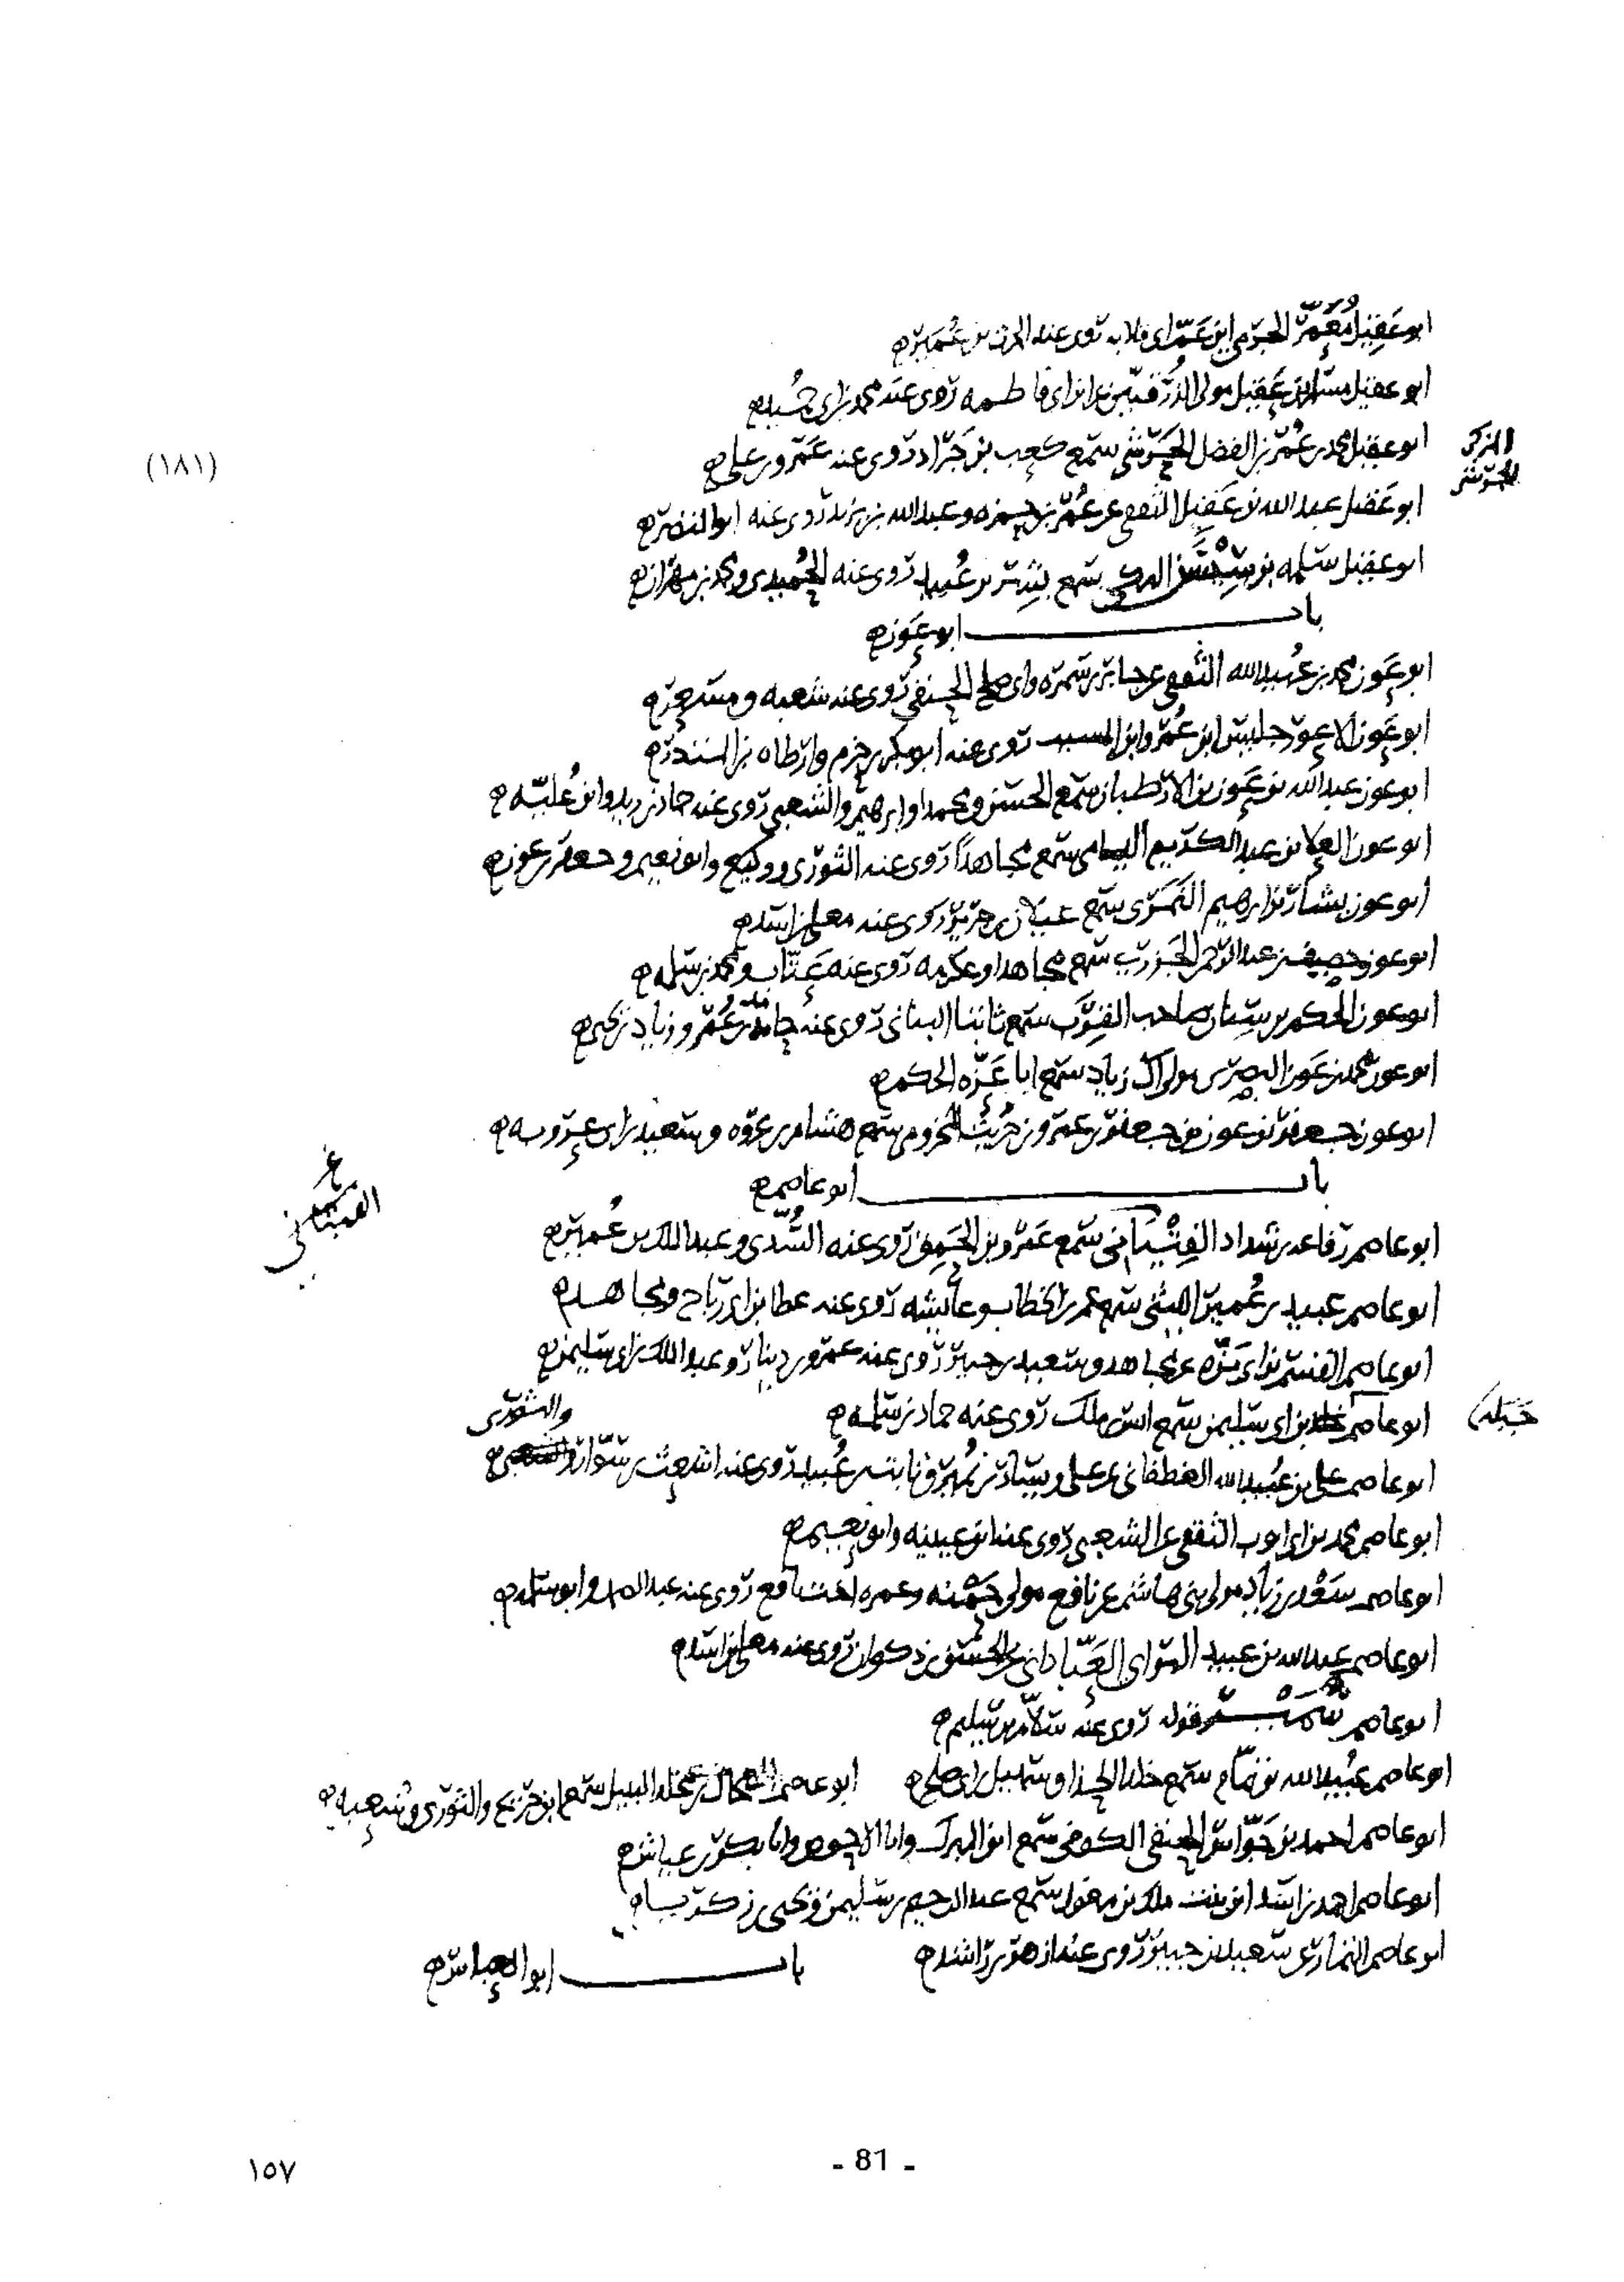 ابو عقيل معمر الجرمي ابن عم ابي قلابه روى عنه الحرث بن عمير
ابو عقيل مولى الزرقيين عن ابن ابي فاطمه روى عنه محمد بن ابي حميد
المزكى
ابو عقيل محمد بن عمر بن الفضل الجرشى سمع كعب بن جراد روى عنه عمرو بن علي
الجرشى
(١٨١)
ابو عقيل عبدالله بن عقيل الثقفي عن عمر بن حمزه وعبدالله بن يزيد روى عنه ابو النضر
ابو عقيل سلمه بن سمع بشر بن عبيد روى عنه الحميدي ومحمد بن مهران
باب ابو عون
ابو عون محمد بن عبيدالله الثقفي عن جابر بن سمره وابي صالح الحنفي روى عنه شعبه ومسعر
ابو عون الاعور جليس ابن عمر وابن المسيب روى عنه ابو بكر بن حزم وارطاه بن المنذر
ابو عون عبدالله بن عون بن الارطبان سمع الحسن ومحمدا وابرهيم والشعبي روى عنه حماد بن زيد وابن عليه
ابو عون العلا بن عبدالكريم اليامى سمع مجاهدا روى عنه الثورى ووكيع وابو نعيم وجعفر بن عون
ابو عون بشار بن ابرهيم النمرى سمع غيلان بن جرير روى عنه معلى بن اسد
ابو عون خصيف بن عبدالرحمن الجزرى سمع مجاهدا وعكرمه روى عنه عتاب ومحمد بن سلمه
ابو عون الحكم بن سنان صاحب القرب سمع ثابتا البناني روى عنه حامد بن عمر وزياد بن يحيى
ابو عون محمد بن عون البصرى مولى ال زياد سمع ابا عزه الحكم
ابو عون جعفر بن عون بن جعفر بن عمرو بن حريث المخزومي سمع هشام بن عروه وسعيد بن ابي عروبه
باب ابو عاصم
الفتياني
ابو عاصم رفاعه بن شداد الفتياني سمع عمرو بن الحمق روى عنه السدي وعبدالملك بن عمير
ابو عاصم عبيد بن عمير الليثى سمع عمر بن الخطاب وعايشه روى عنه عطا بن ابي رباح ومجاهد
ابو عاصم القسم بن ابي بزه عن مجاهد وسعيد بن جبير روى عنه عمرو بن دينار وعبدالملك بن ابي سليمن
جبله
ابو عاصم بن ابي سليمن سمع انس بن ملك روى عنه حماد بن سلمه
والثورى
ابو عاصم علي بن عبيدالله الغطفاني عن علي وثابت بن عبيد روى عنه اشعث بن سوار
ابو عاصم محمد بن ابي ايوب الثقفي عن الشعبي روى عنه ابن عيينه وابو نعيم
ابو عاصم سعد بن زياد مولى بني هاشم عن نافع مولى حمنه وعمره اخت نافع روى عنه وابو سلمه
ابو عاصم عبدالله بن عبيد العباداني عن الحسن بن ذكوان روى عنه معلى بن اسد
ابو عاصم قوله روى عنه سلام بن سليم
ابو عاصم عبيدالله بن تمام سمع خالد الحذا وسهيل بن ابي صالح ابو عاصم الضحاك بن مخلد النبيل سمع ابن جريج والثورى وشعبه
ابو عاصم احمد بن جواس الحنفي الكوفى سمع ابن المبرك وابا الاحوص وابا بكر بن عياش
ابو عاصم احمد بن اسد ابن بنت ملك بن مغول سمع عبدالرحيم بن سليمن ويحيى بن زكريا
ابو عاصم عن سعيد بن جبير روى عنه ازهر بن راشد باب ابو العباس
- 81 -
١٥٧